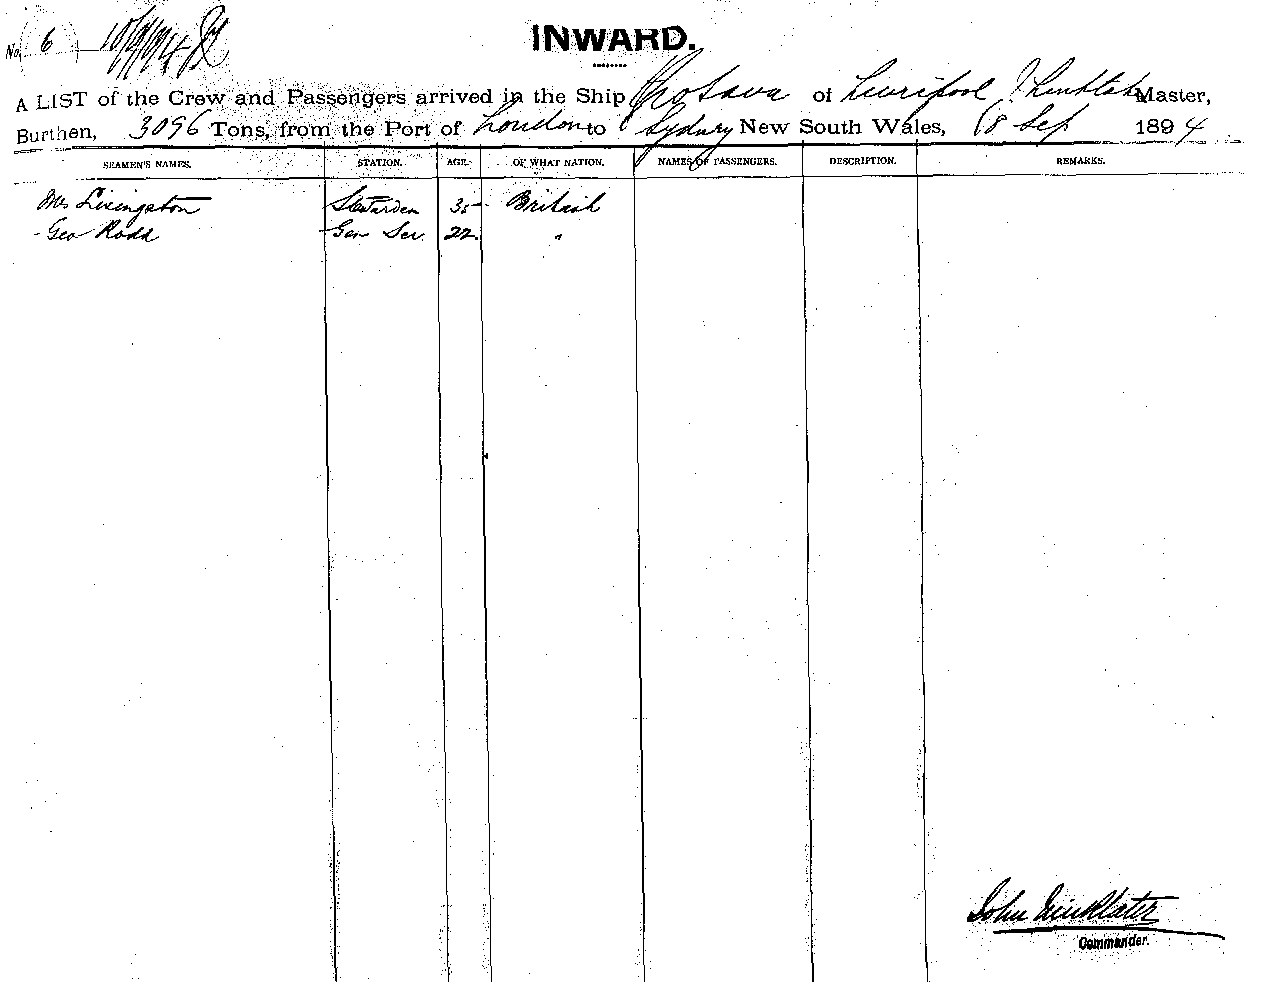 No. 6
INWARD.
A LIST of the Crew and Passengers arrived in the Ship Orotava of Liverpool J Linklater Master,
Burthen, 3096 Tons, from the Port of London to Sydney New South Wales, 18 Sep 1894
SEAMEN'S NAMES. STATION. AGE. OF WHAT NATION. NAMES OF PASSENGERS. DESCRIPTION. REMARKS.
Mrs Livingston Stewardess 35 British
Geo Rodd Gen Ser. 22 "
John Linklater
Commander.